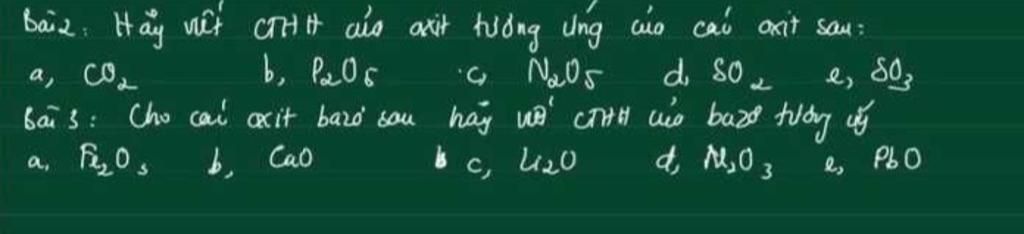 Bài 2: Hãy viết CTHH của axit tương ứng của các oxit sau:
a, CO2 b, P2O5 c, N2O5 d, SO2 e, SO3
Bài 3: Cho các oxit bazơ sau hãy viết CTHH của bazơ tương ứng
a, Fe2O3 b, CaO c, Li2O d, Al2O3 e, PbO